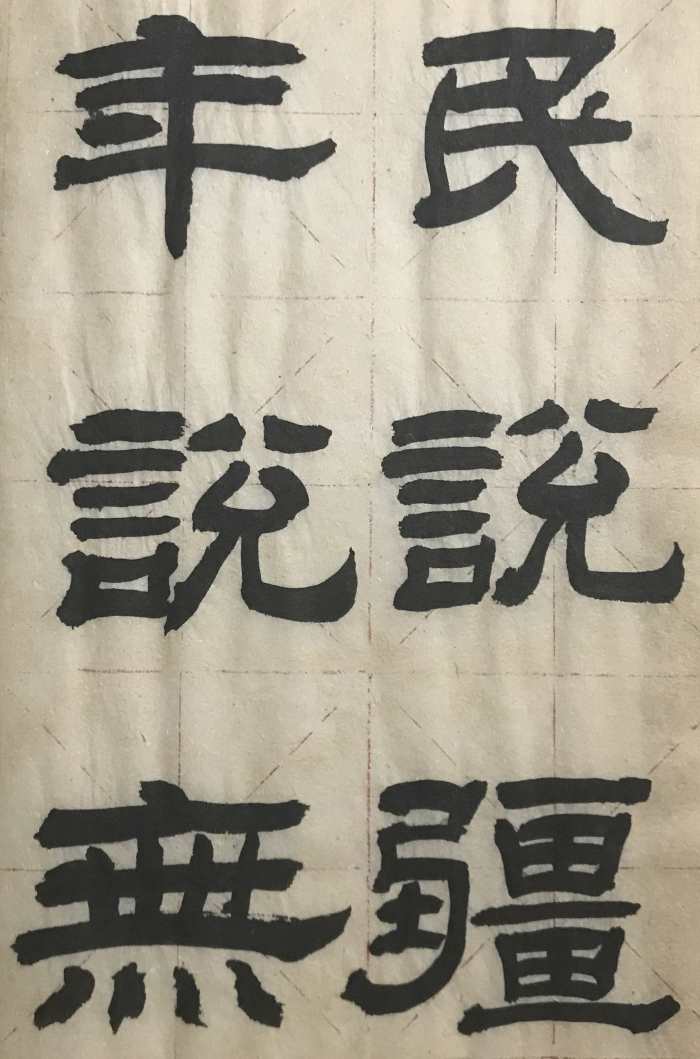 民說疆
年說無